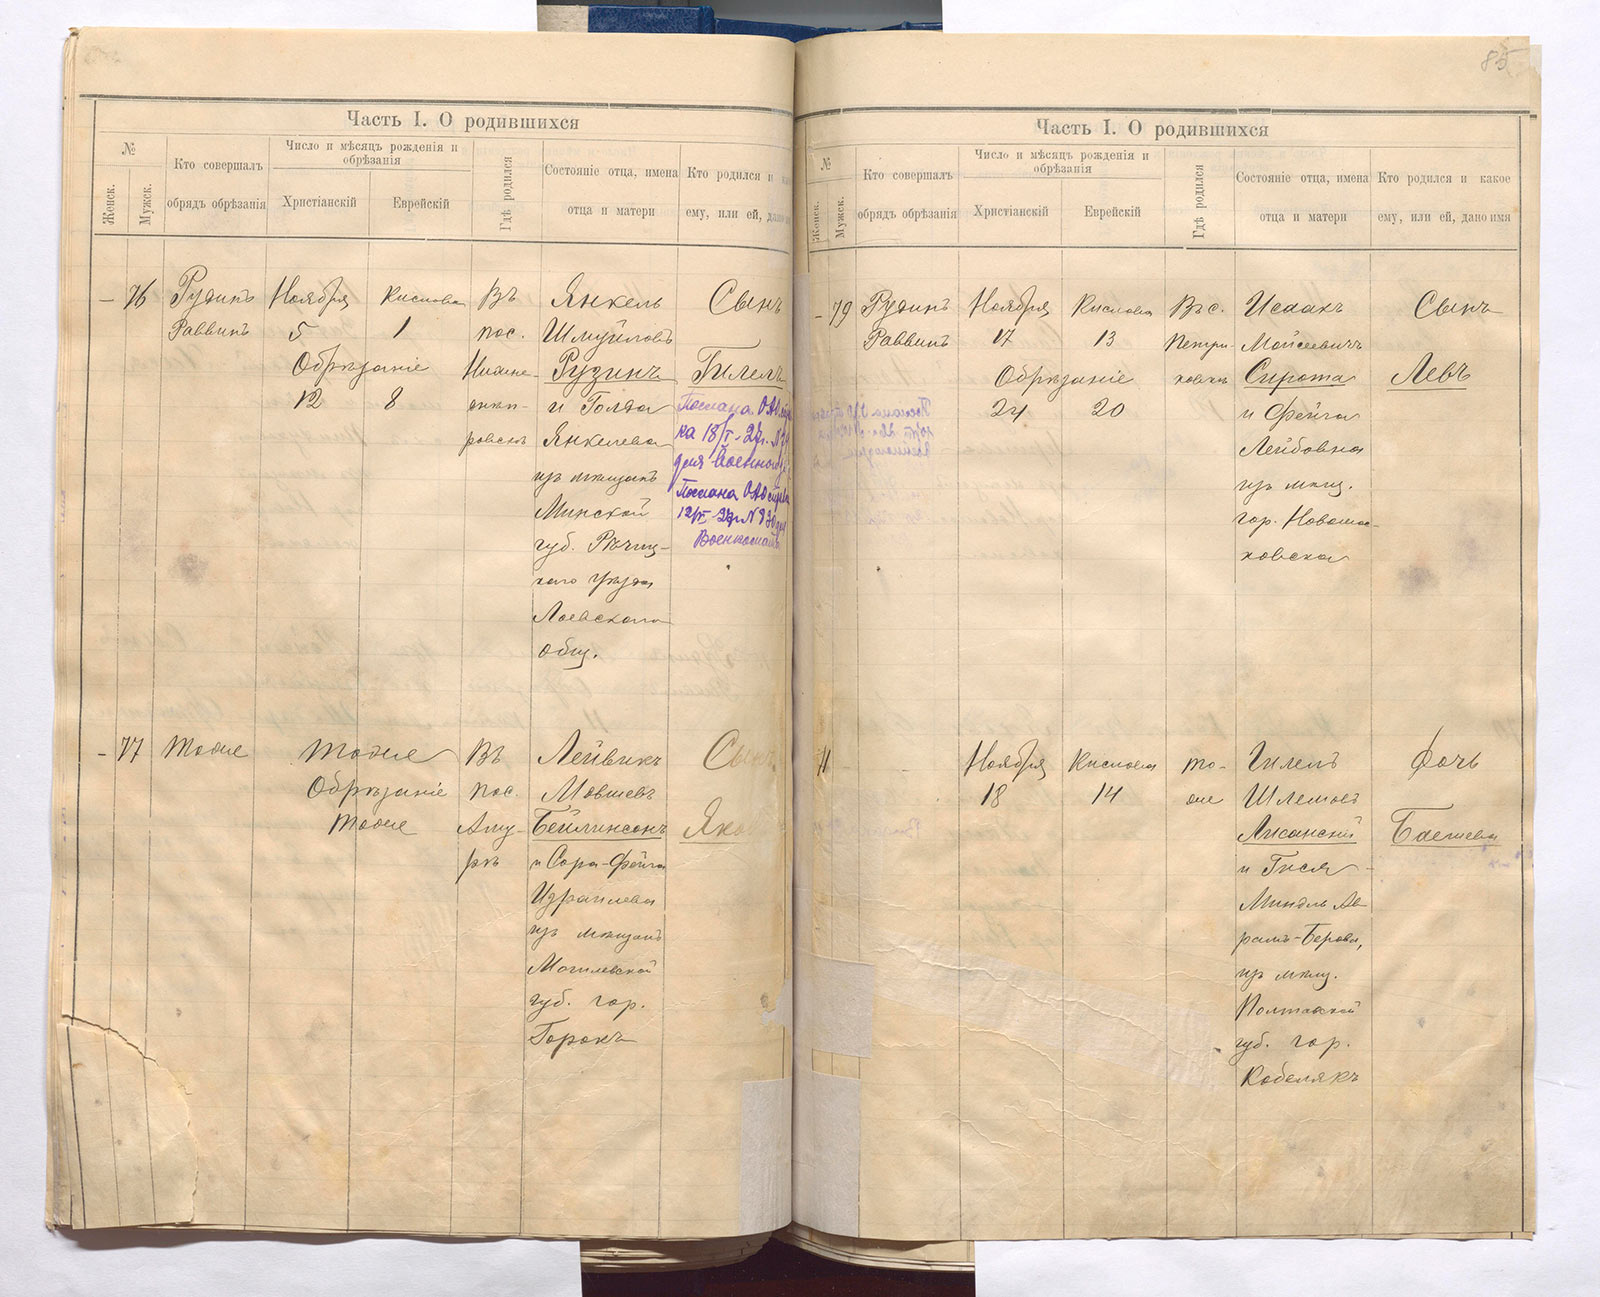 85
Часть I. О родившихся
№
Женск.
Мужск.
Кто совершалъ
обрядъ обрѣзанія
Число и мѣсяцъ рожденія и
обрѣзанія
Христіанскій
Еврейскій
Гдѣ родился
Состояніе отца, имена
отца и матери
Кто родился и
ему, или ей, дано
– 76
Рудинъ
Раввинъ
Ноября
5
Кислова
1
Обрѣзаніе
12
8
Въ
пос.
Нижне-
днѣп-
ровскъ
Янкель
Шмуйловъ
Рузинъ
и Голда
Янкелева
изъ мѣщанъ
Минской
губ. Рѣчиц-
каго уѣзда
Лоевскаго
общ.
Сынъ
Гилелъ
Послана
ка 18/I-27г. №
для Военного
Послана
Военкомата
– 77
Тоже
Тоже
Обрѣзаніе
Тоже
Въ
пос.
Аму-
рѣ
Лейвикъ
Мовшевъ
Бейлинсонъ
и Сора-Фейга
Израилева
изъ мѣщанъ
Могилевской
губ. гор.
Горокъ
Сынъ
Яко
Часть I. О родившихся
№
Женск.
Мужск.
Кто совершалъ
обрядъ обрѣзанія
Число и мѣсяцъ рожденія и
обрѣзанія
Христіанскій
Еврейскій
Гдѣ родился
Состояніе отца, имена
отца и матери
Кто родился и какое
ему, или ей, дано имя
– 79
Рудинъ
Раввинъ
Ноября
17
Кислова
13
Обрѣзаніе
24
20
Въ с.
Петри-
ковкѣ
Исаакъ
Мойсеевичъ
Сирота
и Фейга
Лейбовна
изъ мѣщ.
гор. Новомос-
ковска
Сынъ
Левъ
71
–
–
Ноября
18
Кислова
14
то-
же
Гилелъ
Шлемовъ
Лисанскій
и Гися-
Миндль Ав-
рамъ-Берова,
изъ мѣщ.
Полтавской
губ. гор.
Кобелякъ
Дочь
Басшева